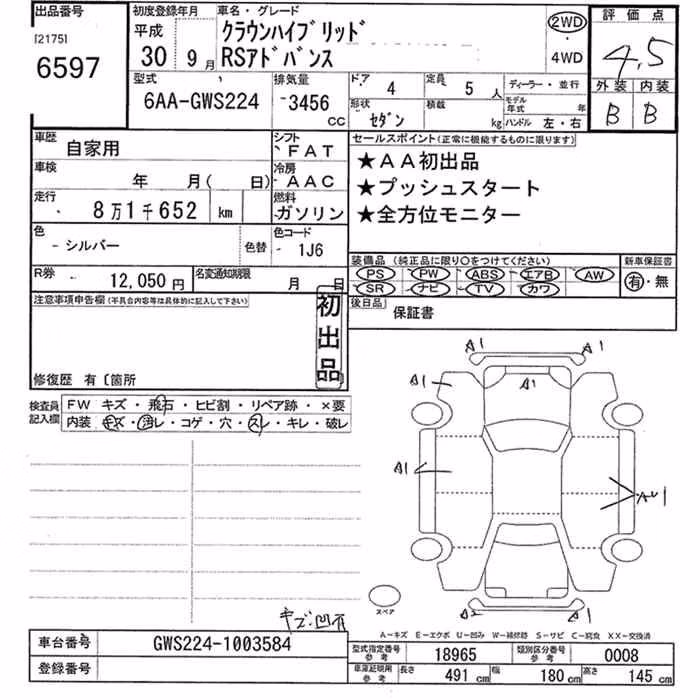 出品番号
[2175]
6597
初度登録年月
平成
30 9月
車名・グレード
クラウンハイブリッド
RSアドバンス
2WD
4WD
評価点
4.5
外装 内装
B B
型式
6AA-GWS224
排気量
3456
CC
ドア
4
定員
5人
ディーラー・並行
形状
セダン
積載
kg
モデル年式
年
ハンドル 左・右
車歴
自家用
シフト
FAT
車検
年 月( 日)
冷房
AAC
走行
8万1千652 km
燃料
ガソリン
色
シルバー
色替
色コード
1J6
R券
12,050円
名変通知期限
月 日
セールスポイント(正常に機能するものに限ります)
★AA初出品
★プッシュスタート
★全方位モニター
装備品(純正品に限り○をつけてください)
PS PW ABS エアB AW
SR ナビ TV カワ
新車保証書
有・無
後日品
保証書
注意事項申告欄(不具合内容等は具体的に記入して下さい)
初出品
修復歴 有〔箇所
検査員記入欄
FW キズ・飛石・ヒビ割・リペア跡・×要
内装 キズ・汚レ・コゲ・穴・スレ・キレ・破レ
A1 A1
A1
A1
A1
A2 A1
スペア
キズ凹有
A-キズ E-エクボ U-凹み W-補修跡 S-サビ C-腐食 XX-交換済
車台番号
GWS224-1003584
登録番号
型式指定番号
参考
18965
類別区分番号
参考
0008
車庫証明用
参考
長さ
491 cm
幅
180 cm
高さ
145 cm